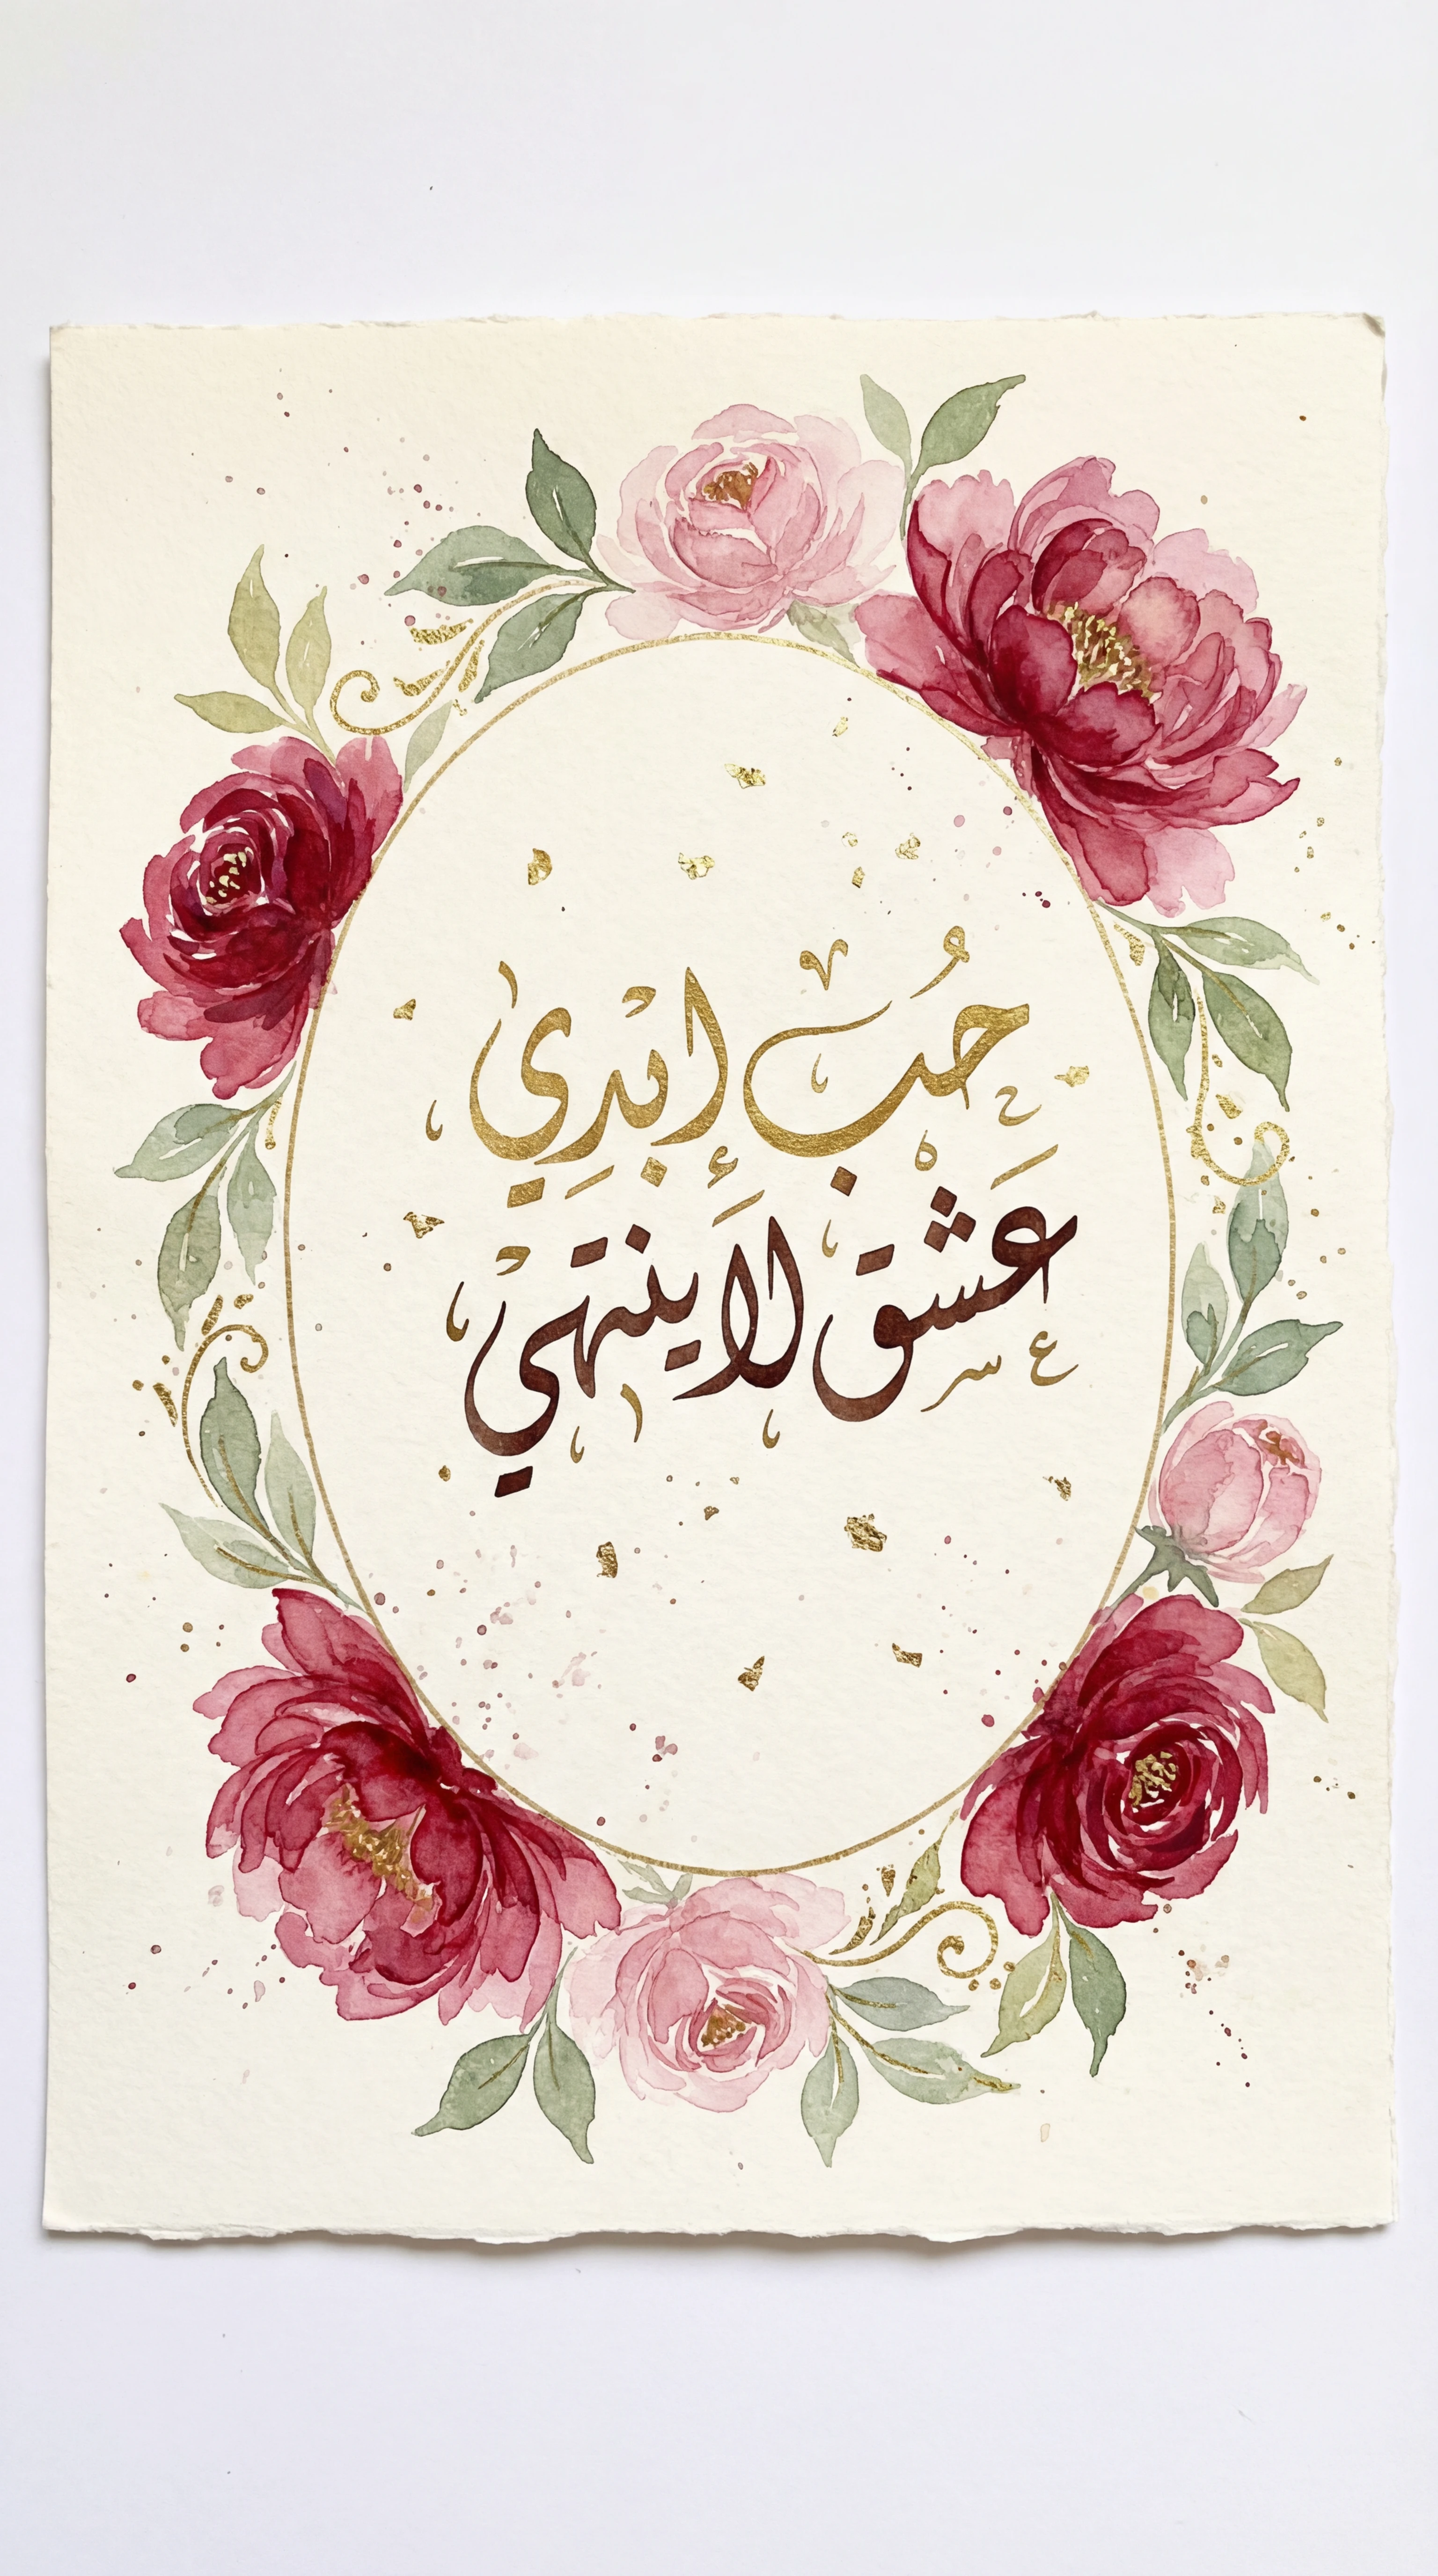 حُب ابدِي
عشق لا ينتهي